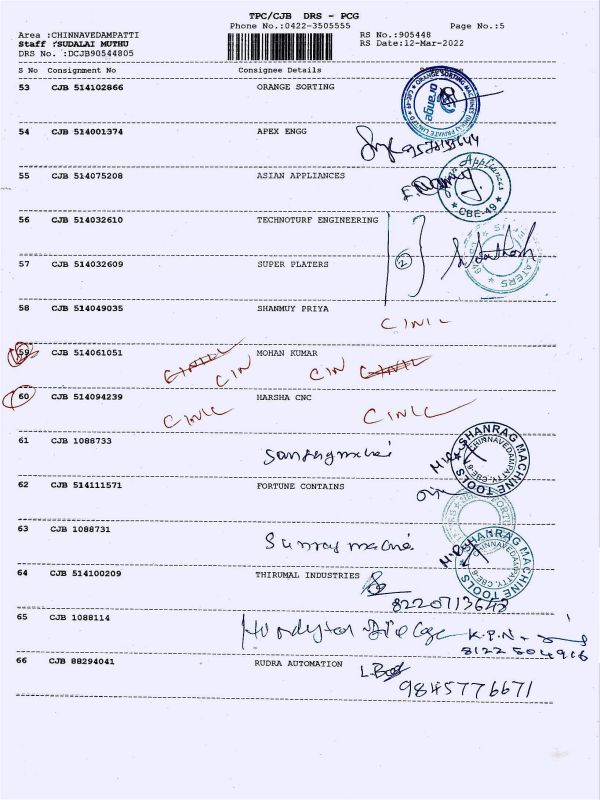 TPC/CJB DRS - PCG
Phone No.:0422-3505555 Page No.:5
Area :CHINNAVEDAMPATTI RS No.:905448
Staff :SUDALAI MUTHU RS Date:12-Mar-2022
DRS No. :DCJB90544805
S No Consignment No Consignee Details
53 CJB 514102866 ORANGE SORTING
orange
54 CJB 514001374 APEX ENGG
55 CJB 514075208 ASIAN APPLIANCES
Appliances
CBE-49
56 CJB 514032610 TECHNOTURF ENGINEERING
57 CJB 514032609 SUPER PLATERS
2
58 CJB 514049035 SHANMUY PRIYA
CINIL
59 CJB 514061051 MOHAN KUMAR
CIN CIN
60 CJB 514094239 HARSHA CNC
CINIL CINIL
61 CJB 1088733
SHANRAG MACHINE TOOLS
CHINNAVEDAMPATTY, CBE-6
62 CJB 514111571 FORTUNE CONTAINS
63 CJB 1088731
SHANRAG MACHINE TOOLS
CHINNAVEDAMPATTY, CBE-6
64 CJB 514100209 THIRUMAL INDUSTRIES
65 CJB 1088114
K.P.N
8122504916
66 CJB 88294041 RUDRA AUTOMATION
9845776671